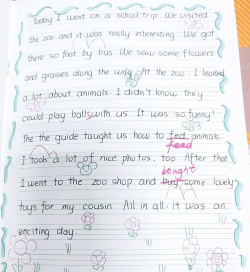 Today I went on a school trip. We visited
the zoo and it was really interesting. We got
there so fast by bus. We saw some flowers
and grasses along the way. At the zoo. I learned
a lot about animals. I didn't know they
could play balls with us. It was so funny!
The the guide taught us how to fed animals.
feed
I took a lot of nice photos, too. After that
bought
I went to the zoo shop and buy some lovely
toys for my cousin. All in all it was an
exciting day.